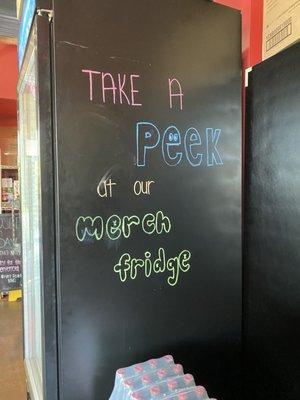 TAKE A
PEEK
at our
merch
fridge